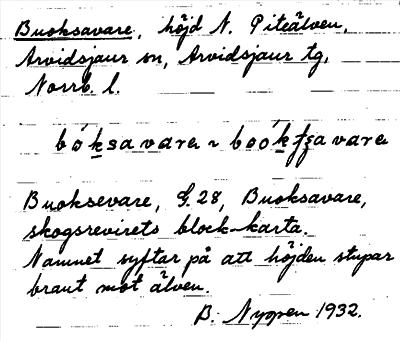 Buoksavare, höjd N. Piteälven,
Arvidsjaur sn, Arvidsjaur tg,
Norrb. l.
bók̲savare ~ boók̲tʒavare
Buoksevare, G. 28, Buoksavare,
skogsrevirets block-karta.
Namnet syftar på att höjden stupar
brant mot älven.
B. Nyppen 1932.